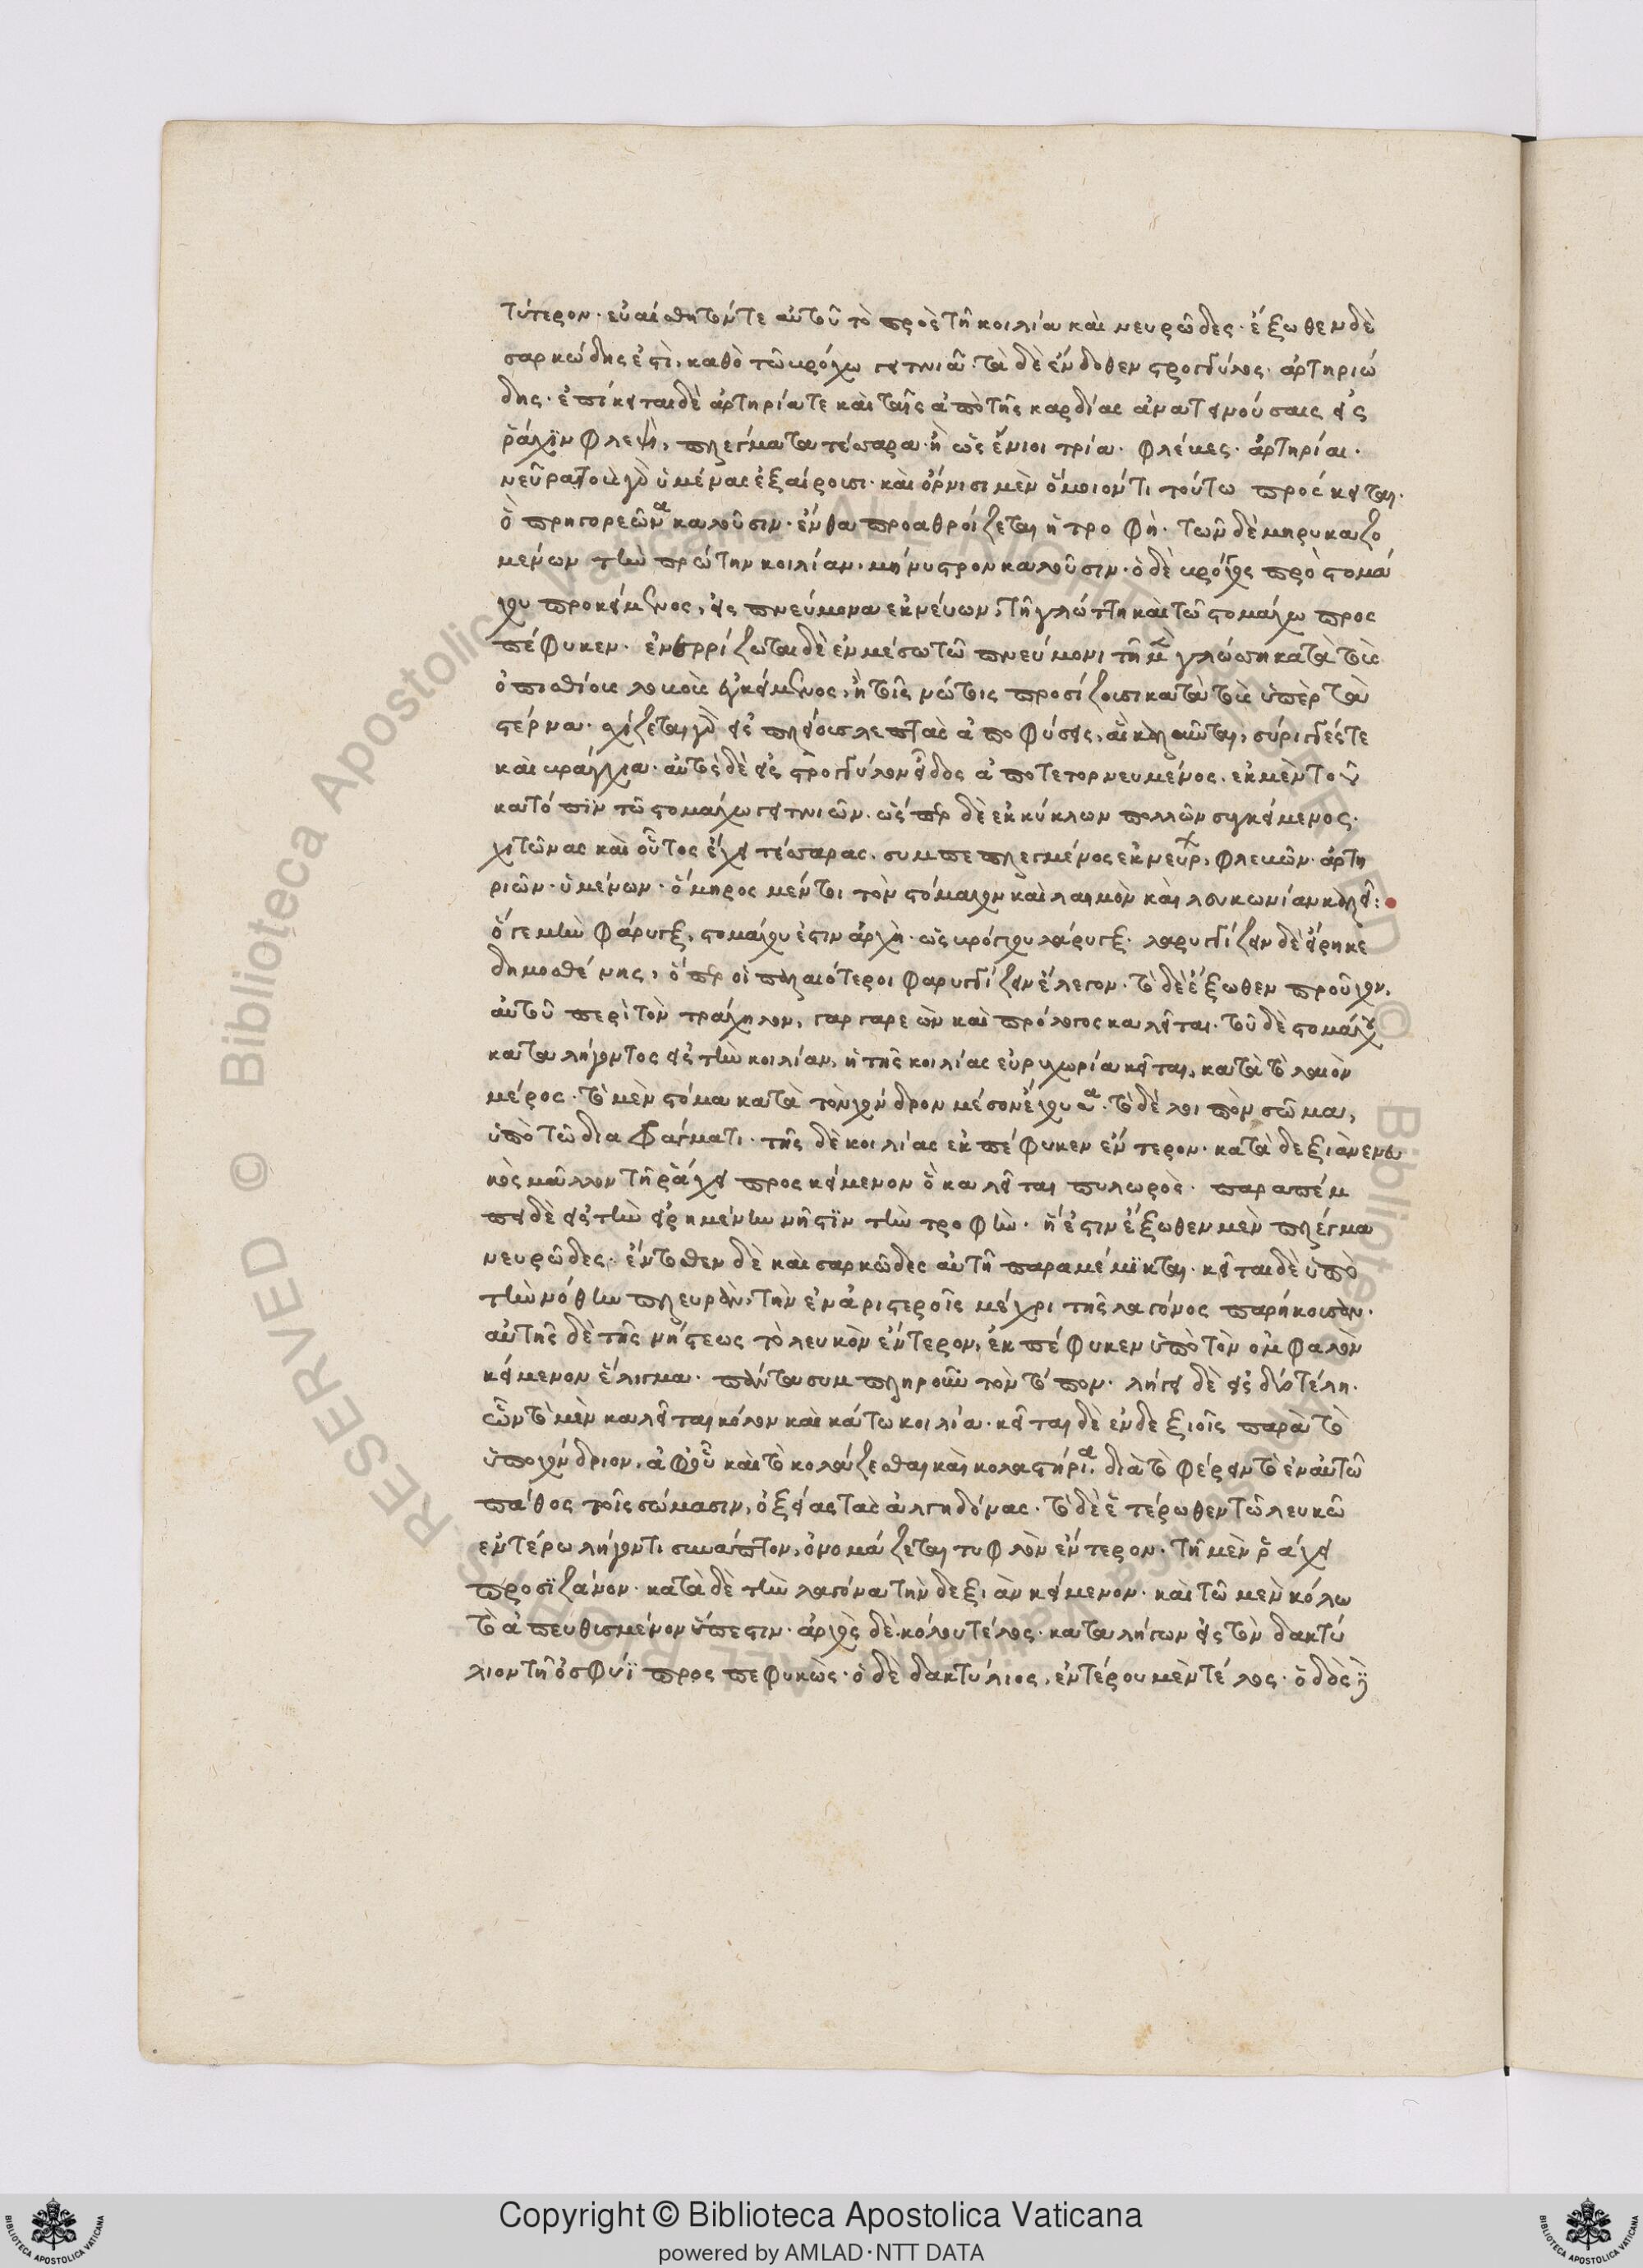 τύτερον· εὐαίσθητόν τε αὐτοῦ τὸ πρὸς τῆ κοιλία καὶ νευρῶδες· ἔξωθεν δὲ
σαρκώδης ἐστὶ, καθὸ τῶ βρόγχω γειτνιᾶ· τὰ δὲ ἔνδοθεν στρογγύλος· ἀρτηριώ
δης· ἐπίκειται δὲ ἀρτηρία τε καὶ ταῖς ἀπὸ τῆς καρδίας ἀνατεινούσαις εἰς
ῥάχϊν φλεψὶ, πλέγματα τέσσαρα· ἢ ὡς ἔνιοι τρία· φλέβες· ἀρτηρίαι·
νεῦρα τοὺς γὰρ ὑμένας ἐξαίρουσι· καὶ ὄρνισι μὲν ὅμοιόν τι τούτω πρόσκειται·
ὃ πρηγορεῶνα καλοῦσιν· ἔνθα προαθροίζεται ἡ τροφή· τῶν δὲ μηρυκαζο
μένων τὴν πρώτην κοιλίαν, μήνυστρον καλοῦσιν· ὁ δὲ βρόγχος πρὸ στομά
χου προκείμενος, εἰς πνεύμονα ἐκνεύων, τῆ γλώττη καὶ τῶ στομάχω προς
πέφυκεν· ἐνερρίζωται δὲ ἐν μέσω τῶ πνεύμονι τῆ μὲν γλώσση κατὰ τοὺς
ὀπισθίους λοβοὺς ἐγκείμενος, ἢ τοῖς νώτοις προσίζουσι κατὰ τοὺς ὑπὲρ τὰ
στέρνα· σχίζεται γὰρ εἰς πλείους λεπτὰς ἀποφύσεις, αἳ καλοῦνται, σύριγγές τε
καὶ βράγχια· αὐτὸς δὲ εἰς στρογγύλον εἶδος ἀποτετορνευμένος· ἐκ μὲν τοῦ
κατόπϊν τῶ στομάχω γειτνιῶν· ὥσπερ δὲ ἐκ κύκλων πολλῶν συγκείμενος·
χιτῶνας καὶ οὗτος ἔχει τέσσαρας· συμπεπλεγμένος ἐκ νεύρων, φλεβῶν· ἀρτη
ριῶν· ὑμένων· ὅμηρος μέντοι τὸν στόμαχον καὶ λαιμὸν καὶ λευκωνίαν καλεῖ:
ὅ γε μὴν φάρυγξ, στομάχου ἐστὶν ἀρχὴ· ὡς βρόγχου λάρυγξ· λαρυγγίζειν δὲ εἴρηκε
δημοσθένης, ὅπερ οἱ παλαιότεροι φαρυγγίζειν ἔλεγον· τὸ δὲ ἔξωθεν προῦχον,
αὐτοῦ περὶ τὸν τράχηλον, γαργαρεὼν καὶ πρόλογος καλεῖται· τοῦ δὲ στομάχου
καταλήγοντος εἰς τὴν κοιλίαν, ἡ τῆς κοιλίας εὐρυχωρία κεῖται, κατὰ τὸ λοιπὸν
μέρος· τὸ μὲν στόμα κατὰ τὸν χόνδρον μέσον ἔχουσα· τὸ δὲ λοιπὸν σῶμα,
ὑπὸ τῶ διαφράγματι· τῆς δὲ κοιλίας ἐκπέφυκεν ἔντερον· κατὰ δεξιὰν ἐντο
κὸς μᾶλλον τῆ ῥάχει προσκείμενον ὃ καλεῖται πυλωρὸς· παραπέμ
πει δὲ εἰς τὴν εἰρημένην νῆστϊν τὴν τροφὴν· ἥ ἐστιν ἔξωθεν μὲν πλέγμα
νευρῶδες· ἔντοσθεν δὲ καὶ σαρκῶδες αὐτῆ παραμέμϊκται· κεῖται δὲ ὑπὸ
τὴν νόθην πλευρὰν, τὴν ἐν ἀριστεροῖς μέχρι τῆς λαγόνος παρήκουσαν·
αὐτῆς δὲ τῆς νήστεως τὸ λευκὸν ἔντερον, ἐκπέφυκεν ὑπὸ τὸν ὀμφαλὸν
κείμενον ἕλιγμα· πάντα συμπληροῦν τὸν τόπον· λήγει δὲ εἰς δύο τέλη·
ὧν τὸ μὲν καλεῖται κόλον καὶ κάτω κοιλία· κεῖται δὲ ἐν δεξιοῖς παρὰ τὸ
ὑποχόνδριον, ἀφ' οὗ καὶ τὸ κολάζεσθαι καὶ κολαστήρια, διὰ τὸ φέρειν τὸ ἐν αὐτῶ
πάθος τοῖς σώμασιν, ὀξείας τὰς ἀλγηδόνας· τὸ δὲ ἑτέρωθεν τῶ λευκῶ
ἐντέρω λήγοντι συνάπτον, ὀνομάζεται τυφλὸν ἔντερον· τῆ μὲν ῥάχει
προσϊζάνον· κατὰ δὲ τὴν λαγόνα τὴν δεξιὰν κείμενον· καὶ τῶ μὲν κόλω
τὸ ἀπευθυσμένον ὕπεστιν· ἀρχὸς δὲ κόλου τέλος· καταλήγων εἰς τὸν δακτύ
λιον τῆ ὀσφύϊ προσπεφυκὼς· ὁ δὲ δακτύλιος, ἐντέρου μὲν τέλος· ὁδὸς